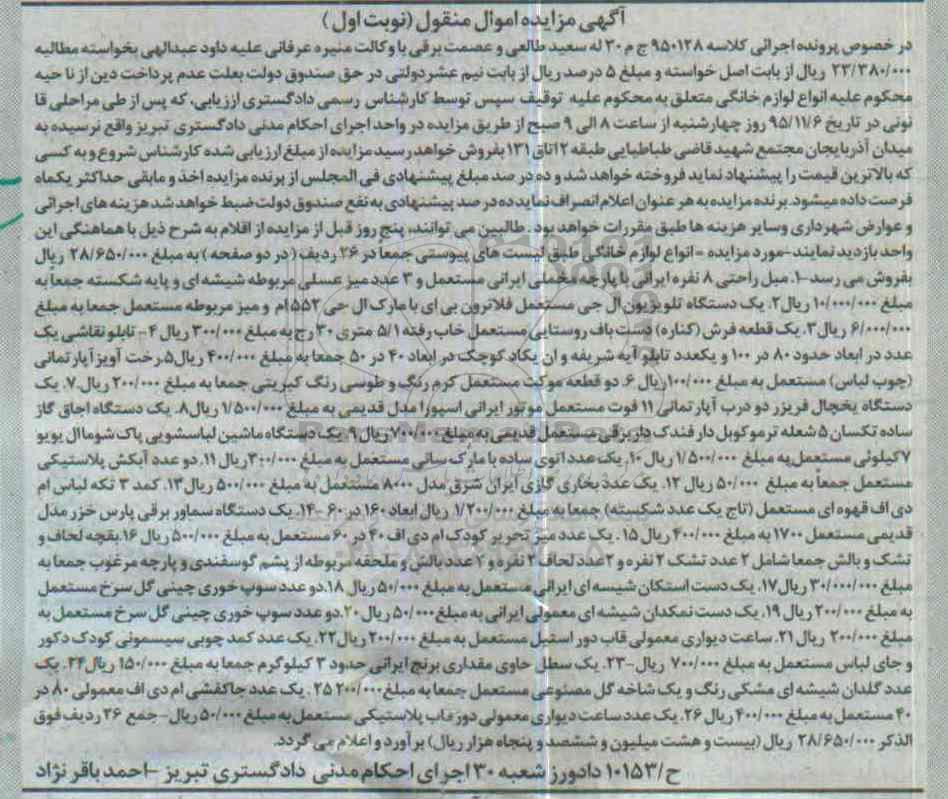 آگهی مزایده اموال منقول (نوبت اول)
در خصوص پرونده اجرائی کلاسه ۹۵۰۱۲۸ ج م ۳۰ له سعید طالعی و عصمت برقی با وکالت منیره عرفانی علیه داود عبدالهی بخواسته مطالبه
۲۳/۳۸۰/۰۰۰ ریال از بابت اصل خواسته و مبلغ ۵ درصد ریال از بابت نیم عشر دولتی در حق صندوق دولت بعلت عدم پرداخت دین از نا حیه
محکوم علیه انواع لوازم خانگی متعلق به محکوم علیه توقیف سپس توسط کارشناس رسمی دادگستری ارزیابی، که پس از طی مراحلی قا
نونی در تاریخ ۹۵/۱۱/۶ روز چهارشنبه از ساعت ۸ الی ۹ صبح از طریق مزایده در واحد اجرای احکام مدنی دادگستری تبریز واقع نرسیده به
میدان آذربایجان مجتمع شهید قاضی طباطبایی طبقه ۲ اتاق ۱۳۱ بفروش خواهد رسید مزایده از مبلغ ارزیابی شده کارشناس شروع و به کسی
که بالاترین قیمت را پیشنهاد نماید فروخته خواهد شد و ده در صد مبلغ پیشنهادی فی المجلس از برنده مزایده اخذ و مابقی حداکثر یکماه
فرصت داده میشود. برنده مزایده به هر عنوان اعلام انصراف نماید ده در صد پیشنهادی به نفع صندوق دولت ضبط خواهد شد هزینه های اجرائی
و عوارض شهرداری وسایر هزینه ها طبق مقررات خواهد بود . طالبین می توانند، پنج روز قبل از مزایده از اقلام به شرح ذیل با هماهنگی این
واحد بازدید نمایند-مورد مزایده =انواع لوازم خانگی طبق لیست های پیوستی جمعاً در ۲۶ ردیف ( در دو صفحه ) به مبلغ ۲۸/۶۵۰/۰۰۰ ریال
بفروش می رسد-۱. مبل راحتی ۸ نفره ایرانی با پارچه مخملی ایرانی مستعمل و ۳ عدد میز عسلی مربوطه شیشه ای و پایه شکسته جمعاً به
مبلغ ۱۰/۰۰۰/۰۰۰ ریال۲. یک دستگاه تلویزیون ال جی مستعمل فلاترون بی ای با مارک ال جی ۵۵۲ ام و میز مربوطه مستعمل جمعا به مبلغ
۶/۰۰۰/۰۰۰ ریال۳. یک قطعه فرش (کناره) دست باف روستایی مستعمل خاب رفته ۵/۱ متری ۳۰ رج به مبلغ ۳۰۰/۰۰۰ ریال ۴- تابلو نقاشی یک
عدد در ابعاد حدود ۸۰ در ۱۰۰ و یکعدد تابلو آیه شریفه و ان یکاد کوچک در ابعاد ۴۰ در ۵۰ جمعا به مبلغ ۴۰۰/۰۰۰ ریال۵.رخت آویز آپارتمانی
(چوب لباس) مستعمل به مبلغ ۱۰۰/۰۰۰ریال ۶. دو قطعه موکت مستعمل کرم رنگ و طوسی رنگ کبریتی جمعا به مبلغ ۲۰۰/۰۰۰ ریال۷. یک
دستگاه یخچال فریزر دو درب آپارتمانی ۱۱ فوت مستعمل موتور ایرانی اسپورا مدل قدیمی به مبلغ ۱/۵۰۰/۰۰۰ ریال۸. یک دستگاه اجاق گاز
ساده تکسان ۵ شعله ترموکوبل دار فندک دار برقی مستعمل قدیمی به مبلغ ۷۰۰/۰۰۰ریال ۹. یک دستگاه ماشین لباسشویی پاک شوما ال یویو
۷کیلوئی مستعمل به مبلغ ۱/۵۰۰/۰۰۰ ریال ۱۰. یک عدد اتوی ساده با مارک سانی مستعمل به مبلغ ۳۰۰/۰۰۰ریال ۱۱. دو عدد آبکش پلاستیکی
مستعمل جمعاً به مبلغ ۵۰/۰۰۰ ریال ۱۲. یک عدد بخاری گازی ایران شرق مدل ۸۰۰۰ مستعمل به مبلغ ۵۰۰/۰۰۰ ریال۱۳. کمد ۳ تکه لباس ام
دی اف قهوه ای مستعمل (تاج یک عدد شکسته) جمعا به مبلغ ۱/۲۰۰/۰۰۰ ریال ابعاد ۱۶۰ در ۶۰ -۱۴. یک دستگاه سماور برقی پارس خزر مدل
قدیمی مستعمل ۱۷۰۰ به مبلغ ۴۰۰/۰۰۰ ریال ۱۵ . یک عدد میز تحریر کودک ام دی اف ۴۰ در ۶۰ مستعمل به مبلغ ۵۰۰/۰۰۰ ریال ۱۶.بقچه لحاف و
تشک و بالش جمعا شامل ۲ عدد تشک ۲ نفره و ۲ عدد لحاف ۲ نفره و ۷ عدد بالش و ملحفه مربوطه از پشم گوسفندی و پارچه مرغوب جمعا به
مبلغ ۳۰/۰۰۰/۰۰۰ ریال۱۷. یک دست استکان شیسه ای ایرانی مستعمل به مبلغ ۵۰/۰۰۰ ریال ۱۸.دو عدد سوپ خوری چینی گل سرخ مستعمل
به مبلغ ۲۰۰/۰۰۰ ریال ۱۹. یک دست نمکدان شیشه ای معمولی ایرانی به مبلغ ۵۰/۰۰۰ ریال ۲۰.دو عدد سوپ خوری چینی گل سرخ مستعمل به
مبلغ ۲۰۰/۰۰۰ ریال ۲۱. ساعت دیواری معمولی قاب دور استیل مستعمل به مبلغ ۲۰۰/۰۰۰ ریال۲۲. یک عدد کمد چوبی سیسمونی کودک دکور
و جای لباس مستعمل به مبلغ ۷۰۰/۰۰۰ ریال-۲۳. یک سطل حاوی مقداری برنج ایرانی حدود ۳ کیلوگرم جمعا به مبلغ ۱۵۰/۰۰۰ ریال۲۴. یک
عدد گلدان شیشه ای مشکی رنگ و یک شاخه گل مصنوعی مستعمل جمعا به مبلغ ۲۰۰/۰۰۰ ۲۵ . یک عدد جاکفشی ام دی اف معمولی ۸۰ در
۴۰ مستعمل به مبلغ ۴۰۰/۰۰۰ ریال ۲۶. یک عدد ساعت دیواری معمولی دور قاب پلاستیکی مستعمل به مبلغ ۵۰/۰۰۰ ریال- جمع ۲۶ ردیف فوق
الذکر ۲۸/۶۵۰/۰۰۰ ریال (بیست و هشت میلیون و ششصد و پنجاه هزار ریال) برآورد و اعلام می گردد.
ح/۱۰۱۵۳ دادورز شعبه ۳۰ اجرای احکام مدنی دادگستری تبریز -احمد باقر نژاد